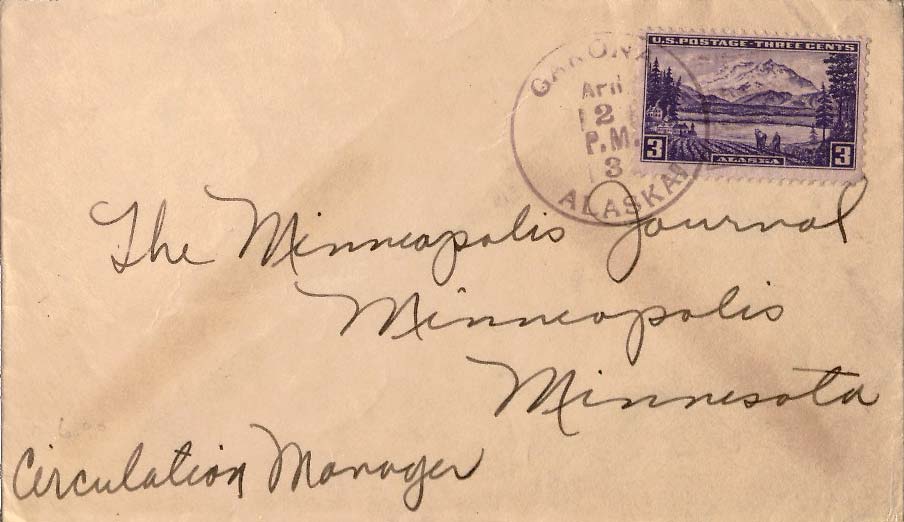 U.S. POSTAGE-THREE CENTS
3 ALASKA 3
GAKONA
Apr
2
P.M.
3
ALASKA
The Minneapolis Journal
Minneapolis
Minnesota
Circulation Manager